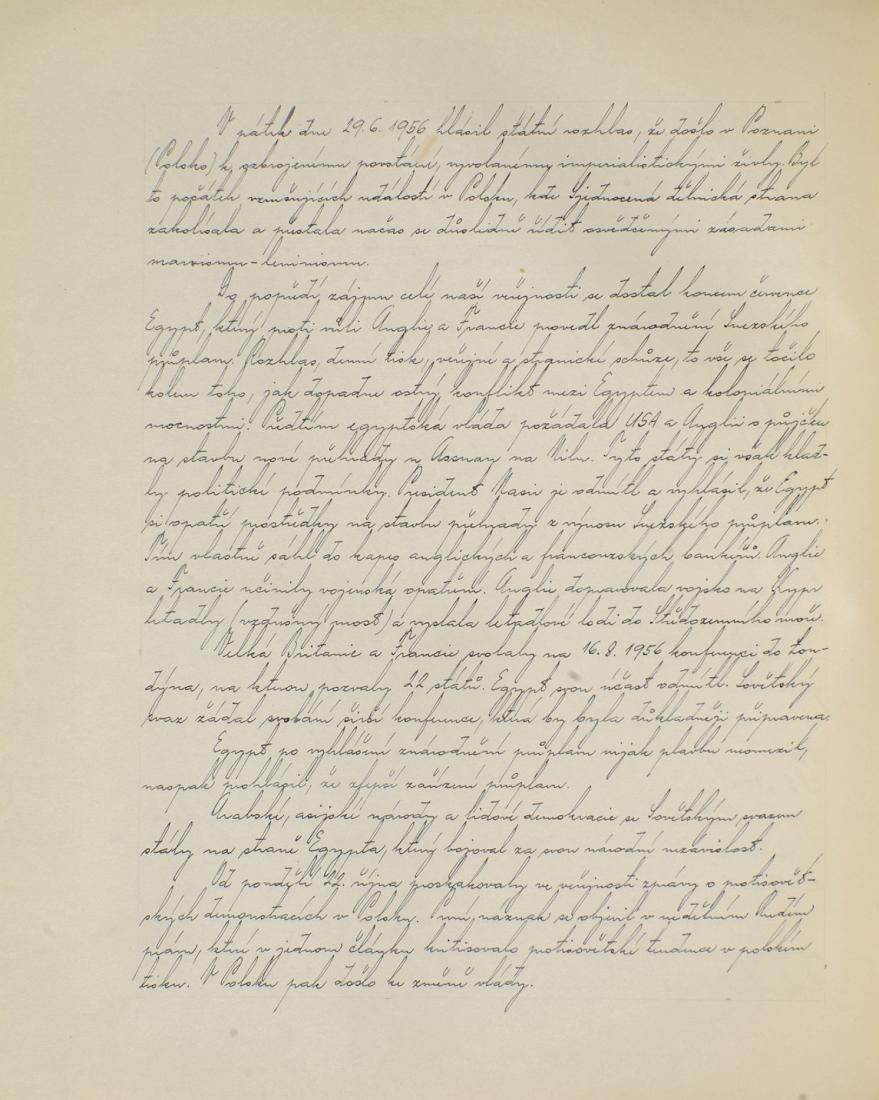 V pátek dne 29.6.1956 hlásil státní rozhlas, že došlo v Poznani
(Polsko) k ozbrojenému povstání, vyvolanému imperialistickými živly. Byl
to počátek vzrušujících událostí v Polsku, kde Sjednocená dělnická strana
zakolísala a přestala načas se důsledně řídit osvědčenými zásadami
marxismu-leninismu.
Do popředí zájmu celé naší veřejnosti se dostal koncem července
Egypt, který proti vůli Anglie a Francie provedl znárodnění Suezského
průplavu. Rozhlas, denní tisk, veřejné a stranické schůze, to vše se točilo
kolem toho, jak dopadne ostrý konflikt mezi Egyptem a koloniálními
mocnostmi. Předtím egyptská vláda požádala USA a Anglii o půjčku
na stavbu nové přehrady u Assuan na Nilu. Tyto státy si však klad-
ly politické podmínky. President Nasir je odmítl a vyhlásil, že Egypt
si opatří prostředky na stavbu přehrady z výnosu Suezského průplavu.
Tím vlastně sáhl do kapes anglických a francouzských bankéřů. Anglie
a Francie učinily vojenská opatření. Anglie dopravovala vojsko na Kypr
letadly (vzdušný most) a vyslala letadlové lodi do Středozemního moře.
Velká Britanie a Francie svolaly na 16.8.1956 konferenci do Lon-
dýna, na kterou pozvaly 22 států. Egypt svou účast odmítl. Sovětský
svaz žádal svolání širší konference, která by byla důkladněji připravena.
Egypt po vyhlášení znárodnění průplavu nijak plavbu neomezil,
naopak prohlásil, že zlepší zařízení průplavu.
Arabské, asijské národy a lidové demokracie se Sovětským svazem
stály na straně Egypta, který bojoval za svou národní nezávislost.
Od pondělí 22. října proskakovaly ve veřejnosti zprávy o protisovět-
ských demonstracích v Polsku. První náznak se objevil v nedělním Rudém
právu, které v jednom článku kritisovalo protisovětské tendence v polském
tisku. V Polsku pak došlo ke změně vlády.